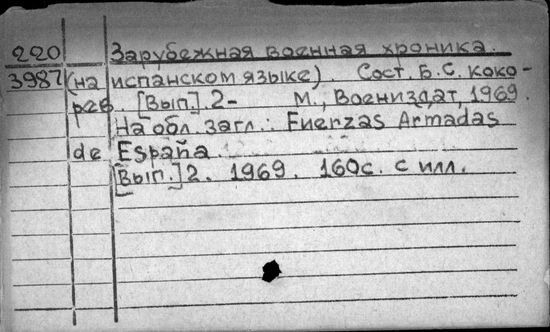 220 Зарубежная военная хроника.
3987 (на испанском языке). Сост. Б.С. Коко-
рев. [Вып]. 2- М., Воениздат, 1969.
На обл. загл.: Fuerzas Armadas
de España.
[Вып.] 2. 1969. 160с. с илл.